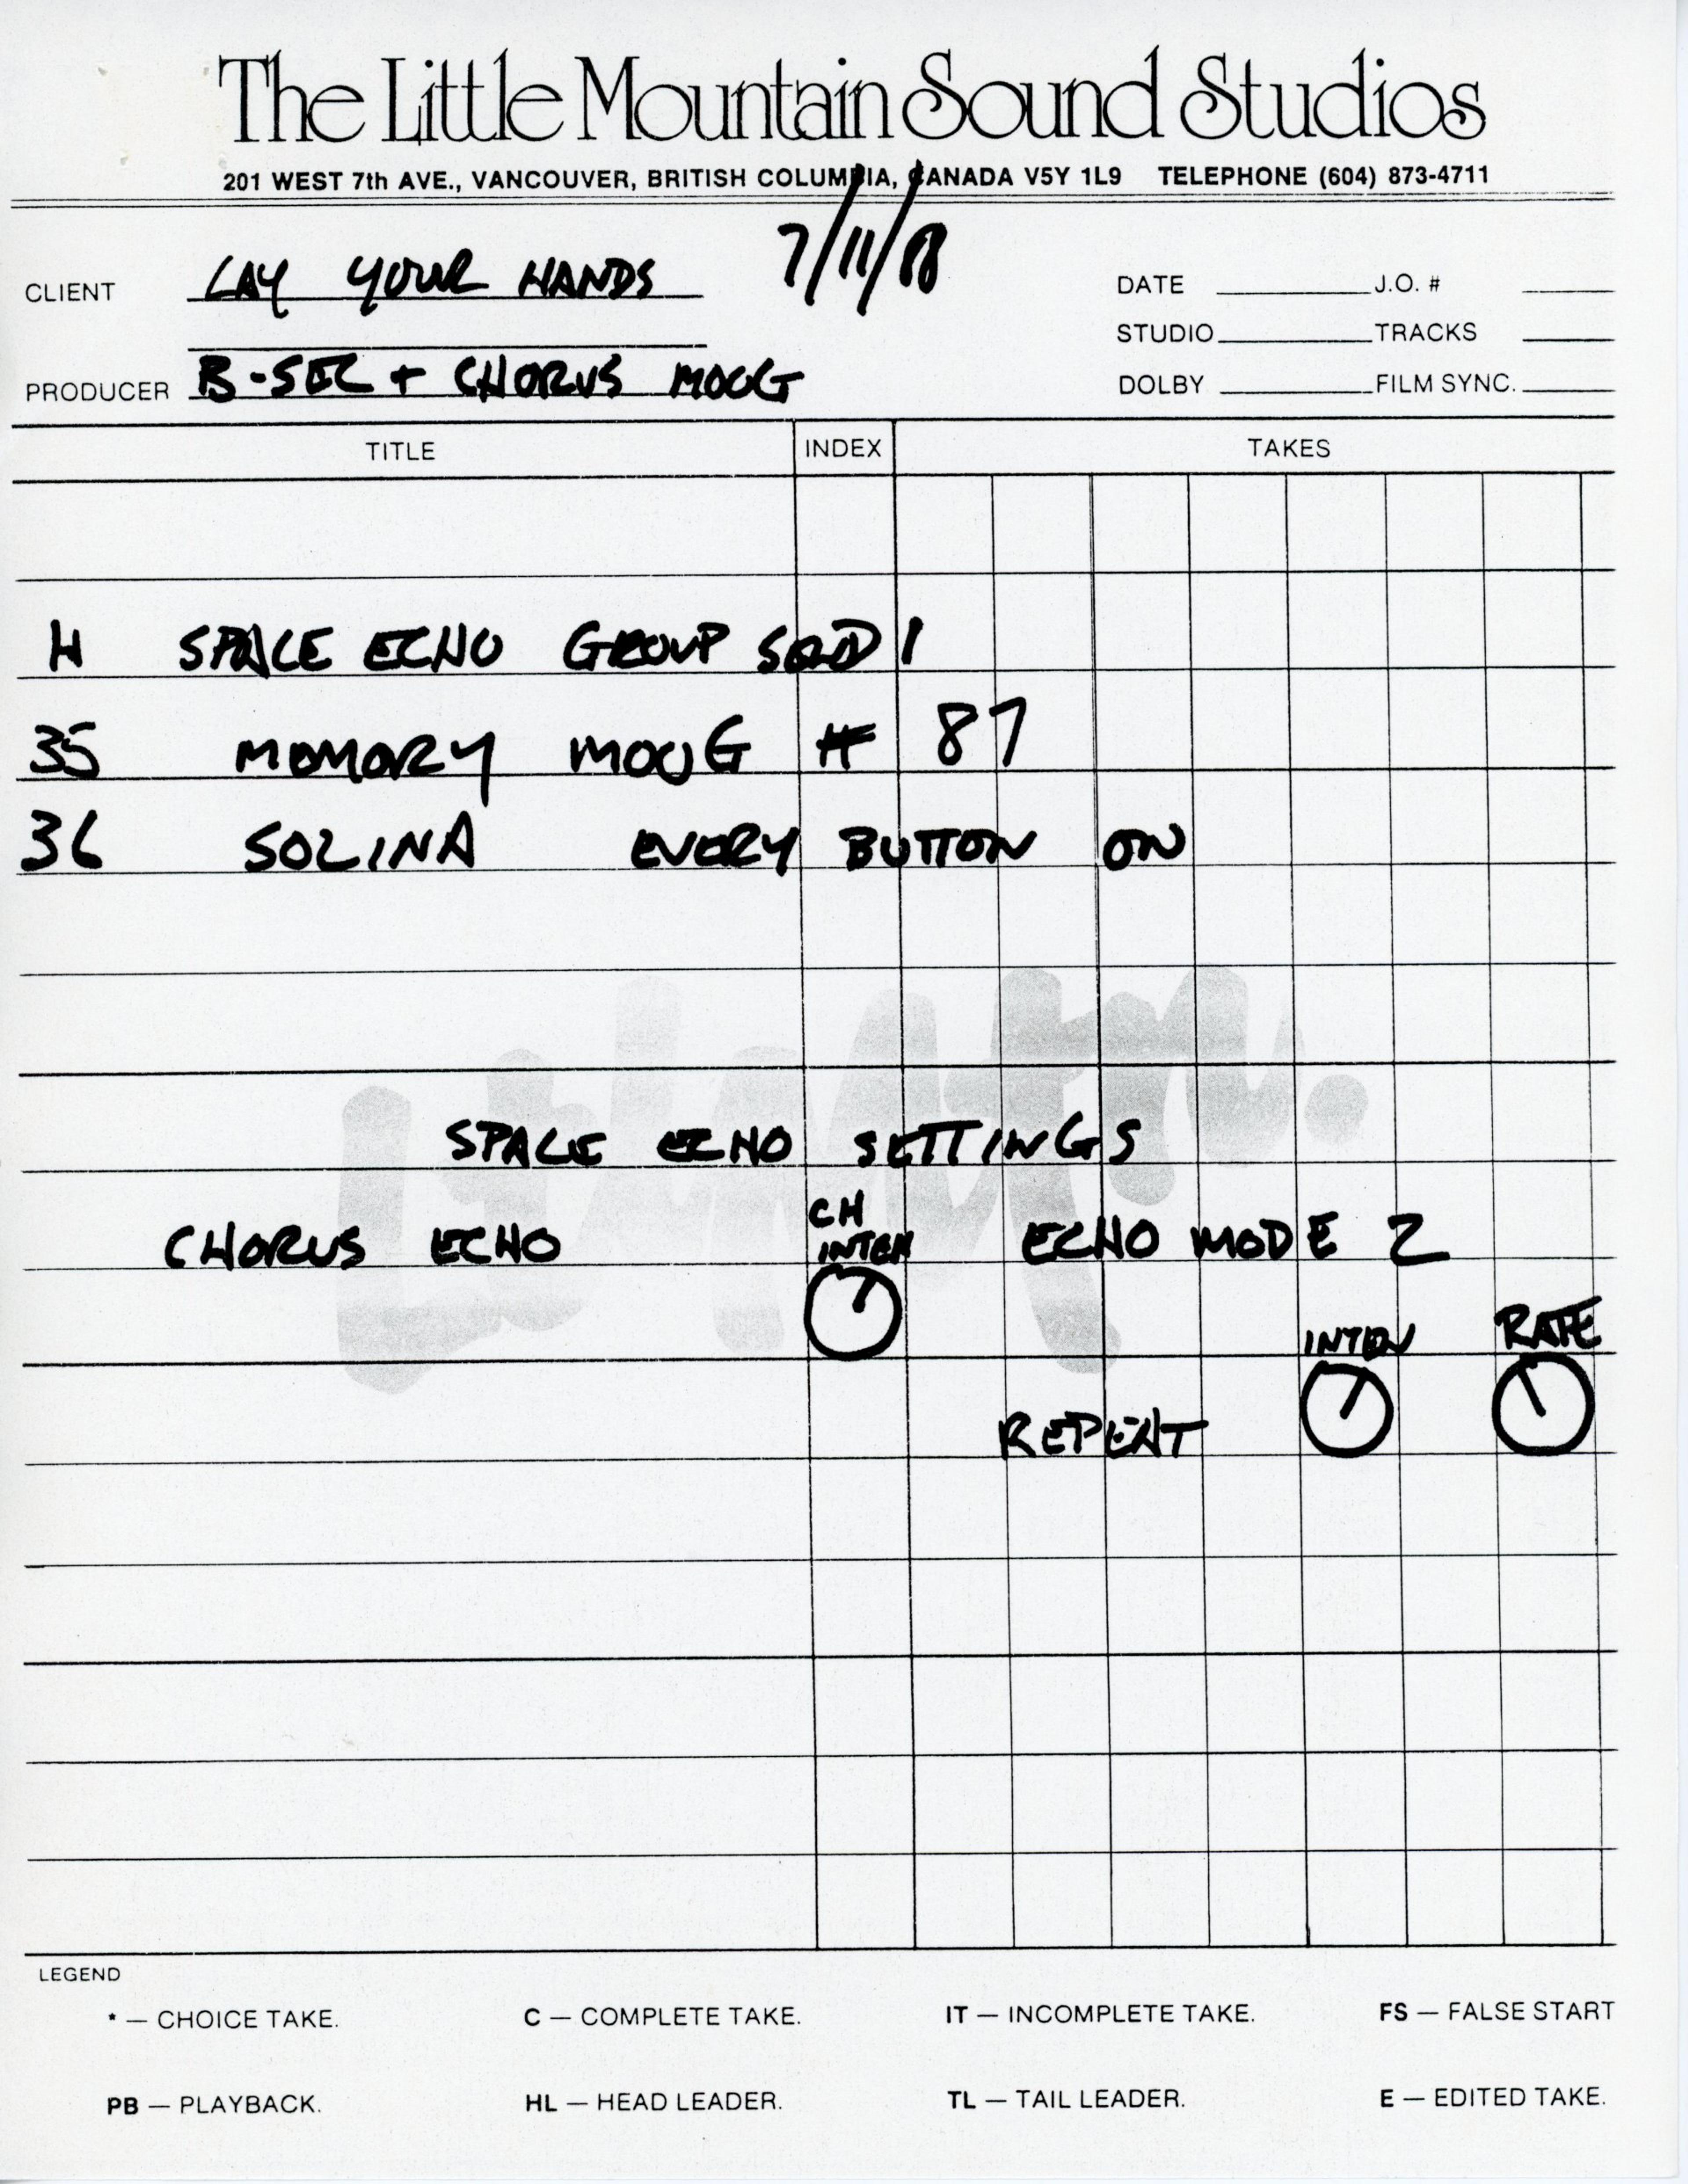 The Little Mountain Sound Studios
201 WEST 7th AVE., VANCOUVER, BRITISH COLUMBIA, CANADA V5Y 1L9 TELEPHONE (604) 873-4711
7/11/88
CLIENT LAY YOUR HANDS
DATE J.O. #
STUDIO TRACKS
PRODUCER B-SEC + CHORUS MOOG
DOLBY FILM SYNC.
TITLE INDEX TAKES
H SPACE ECHO GROUP SEND 1
35 MEMORY MOOG # 87
36 SOLINA EVERY BUTTON ON
Lit Mtn.
SPACE ECHO SETTINGS
CHORUS ECHO CH INTEN ECHO MODE 2
REPEAT INTEN RATE
LEGEND
* — CHOICE TAKE. C — COMPLETE TAKE. IT — INCOMPLETE TAKE. FS — FALSE START
PB — PLAYBACK. HL — HEAD LEADER. TL — TAIL LEADER. E — EDITED TAKE.